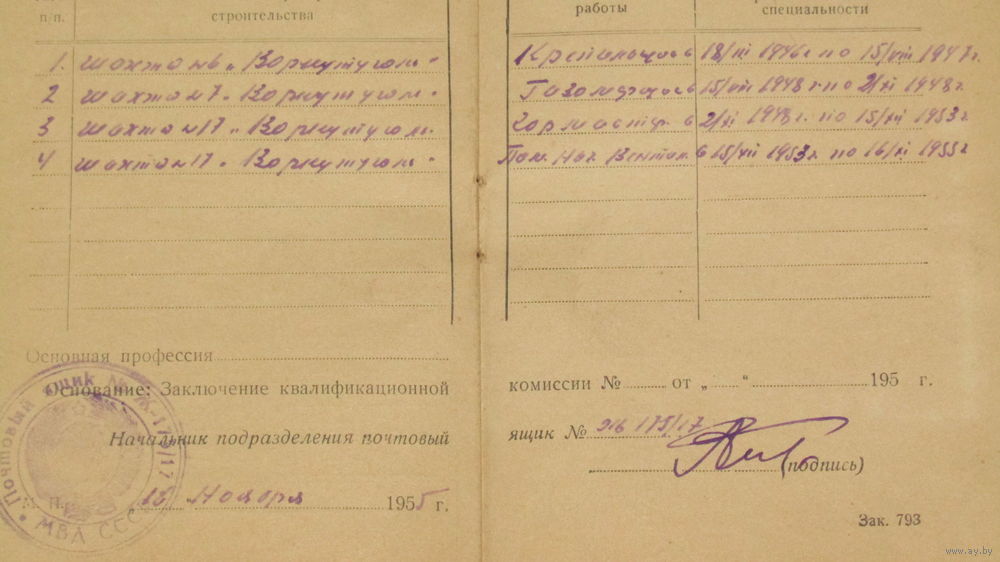 п/п. строительства работы специальности
1. шахта №6 „Воркутуголь" Крепильщик в 18/XI 1946 г. по 15/VIII 1947 г.
2 шахта №7 „Воркутуголь" Газомерщик в 15/VIII 1948 г. по 2/XI 1948 г.
3 шахта №17 „Воркутуголь" Гормастер в 2/XI 1948 г. по 15/VII 1953 г.
4 шахта №17 „Воркутуголь" Пом. Нач. Вентил. в 15/VII 1953 г. по 16/XI 1955 г.
Основная профессия
Основание: Заключение квалификационной комиссии № от „ “ 195 г.
Начальник подразделения почтовый ящик № 175/17
(подпись)
М. П. „18" Ноября 1955 г.
Почтовый ящик № Ж-175/17
МВД СССР
Зак. 793
www.ay.by